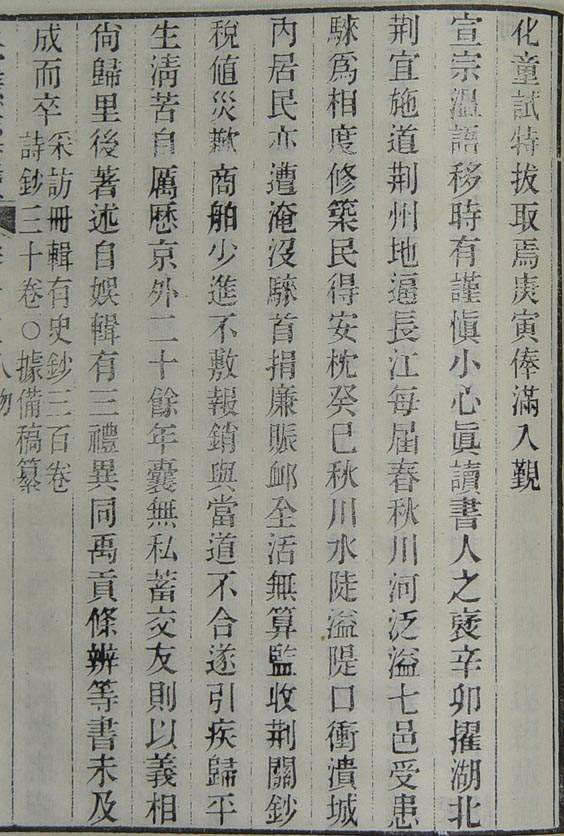 化童試特拔取焉庚寅俸滿入覲
宣宗溫語移時有謹慎小心眞讀書人之襃辛卯擢湖北
荆宜施道荆州地逼長江每屆春秋川河泛溢七邑受患
騋爲相度修築民得安枕癸巳秋川水陡溢隄口衝潰城
內居民亦遭淹沒騋首捐廉賑邺全活無算監收荆關鈔
稅値災歉商舶少進不敷報銷與當道不合遂引疾歸平
生淸苦自厲歷京外二十餘年囊無私蓄交友則以義相
尙歸里後著述自娛輯有三禮異同禹貢條辨等書未及
成而卒
采訪冊輯有史鈔三百卷
詩鈔三十卷○據備稿纂